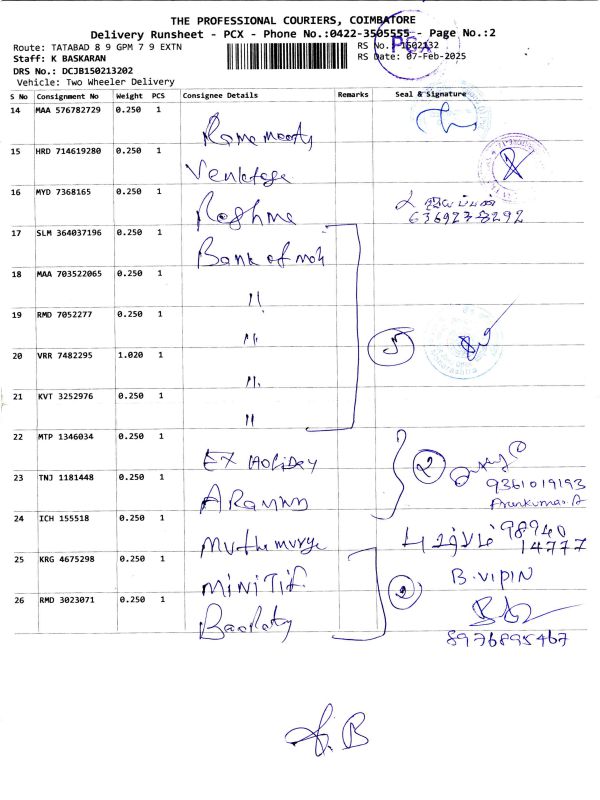 THE PROFESSIONAL COURIERS, COIMBATORE
Delivery Runsheet - PCX - Phone No.:0422-3505555 - Page No.:2
Route: TATABAD 8 9 GPM 7 9 EXTN
RS No. 1502132
Staff: K BASKARAN
RS Date: 07-Feb-2025
DRS No.: DCJB150213202
Vehicle: Two Wheeler Delivery
PCX
S No Consignment No Weight PCS Consignee Details Remarks Seal & Signature
14 MAA 576782729 0.250 1
15 HRD 714619280 0.250 1
16 MYD 7368165 0.250 1 Reshma
17 SLM 364037196 0.250 1 Bank of
18 MAA 703522065 0.250 1 "
19 RMD 7052277 0.250 1 "
20 VRR 7482295 1.020 1 "
21 KVT 3252976 0.250 1 "
5
22 MTP 1346034 0.250 1 EX HOLIDAY
23 TNJ 1181448 0.250 1
2
9361019193
Arunkumar.A
24 ICH 155518 0.250 1
98940
14777
25 KRG 4675298 0.250 1 MINI
2
B.VIPIN
26 RMD 3023071 0.250 1
8976895467